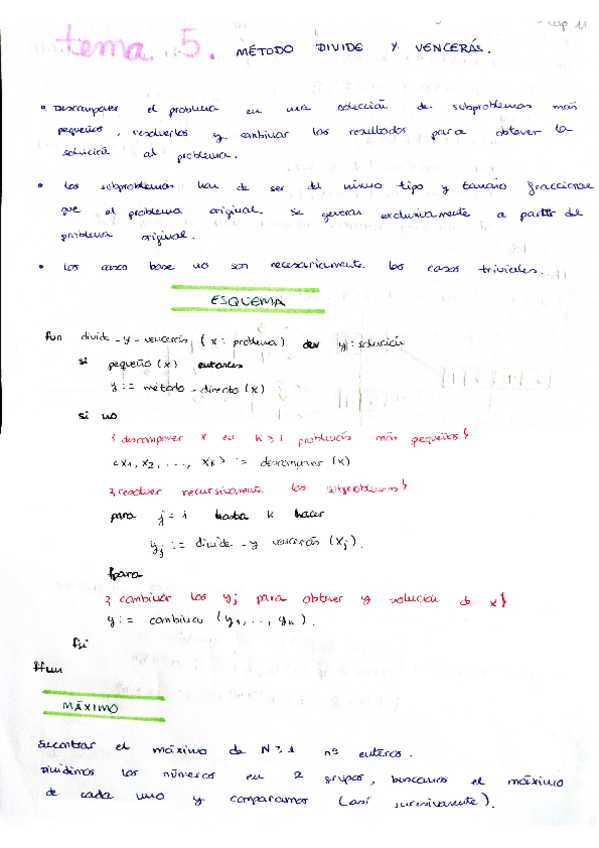 cap 11
tema 5. MÉTODO DIVIDE Y VENCERÁS.
• Descomponer el problema en una colección de subproblemas más
pequeños, resolverlos y combinar los resultados para obtener la
solución al problema.
• Los subproblemas han de ser del mismo tipo y tamaño fraccionar
que el problema original. Se generan exclusivamente a partir del
problema original.
• Los casos base no son necesariamente los casos triviales.
ESQUEMA
fun divide-y-vencerás (x: problema) dev y: solución
si pequeño (x) entonces
y := método-directo (x)
si no
{descomponer x en k≥1 problemas más pequeños}
<x1, x2, ..., xk> := descomponer (x)
{resolver recursivamente los subproblemas}
para j = 1 hasta k hacer
yj := divide-y vencerás (xj).
fpara
{combinar los yj para obtener y solución de x}
y := combinar (y1, ..., yk).
fsi
ffun
MÁXIMO
Encontrar el máximo de N≥1 nº enteros.
Dividimos los números en 2 grupos, buscamos el máximo
de cada uno y comparamos (así sucesivamente).